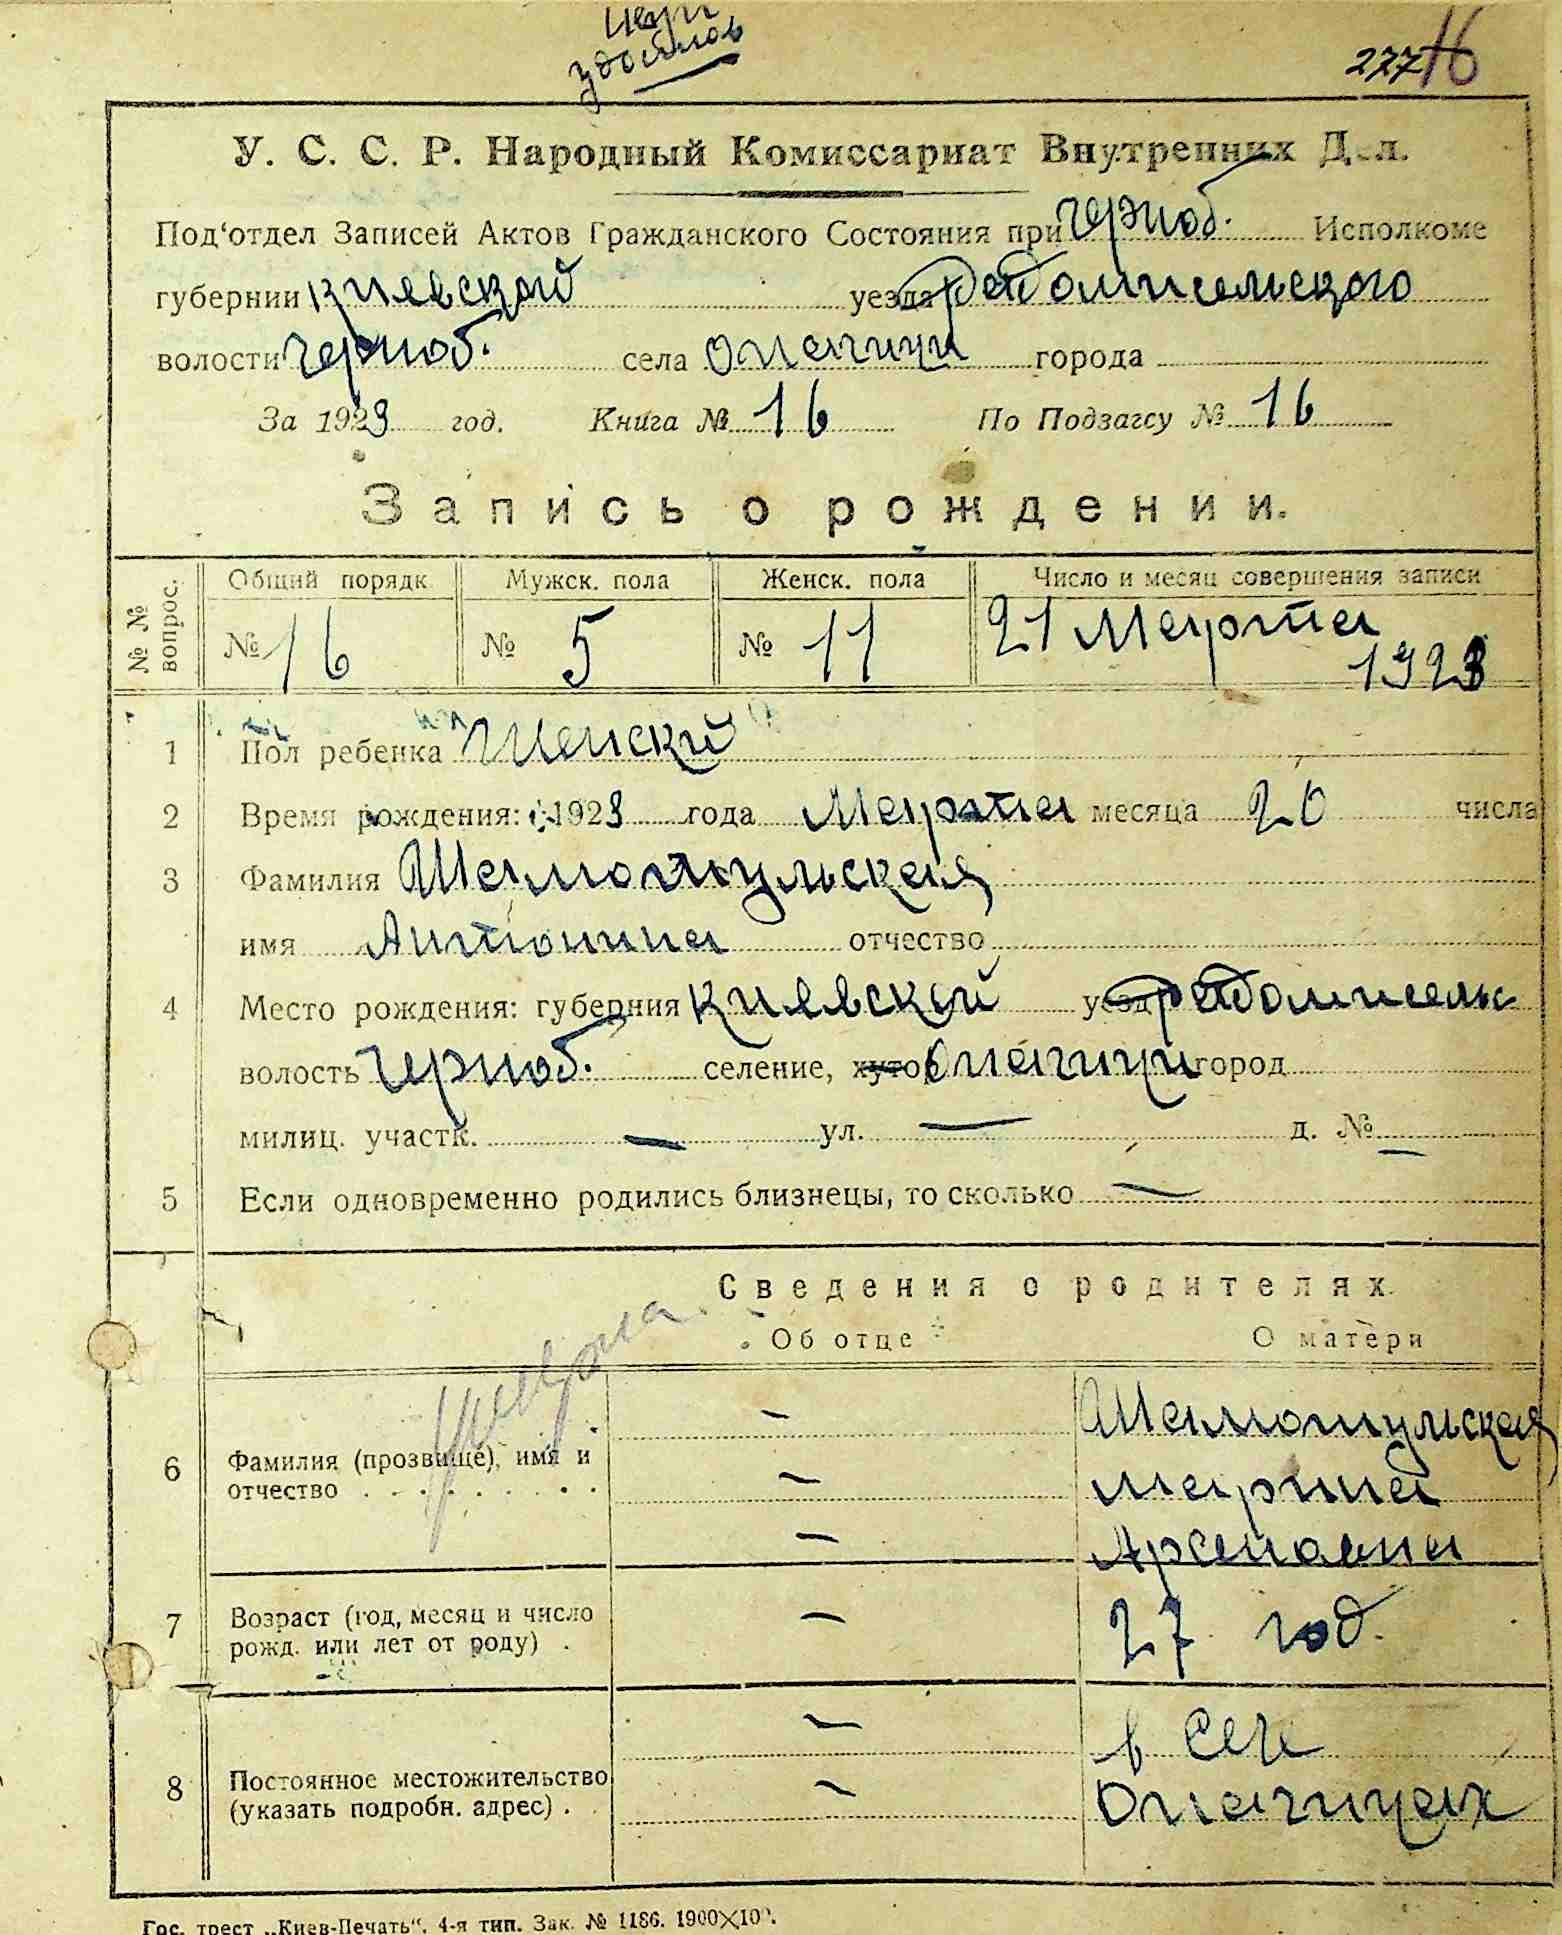 277 16
У. С. С. Р. Народный Комиссариат Внутренних Дел.
Под'отдел Записей Актов Гражданского Состояния при Черноб. Исполкоме
губернии Киевской уезда Радомисельского
волости Черноб. села Опачичи города
За 1923 год. Книга № 16 По Подзагсу № 16
Запись о рождении.
№ № вопрос. Общий порядк. Мужск. пола Женск. пола Число и месяц совершения записи
№ 16 № 5 № 11 21 Марта 1923
1 Пол ребенка Женский
2 Время рождения: 1923 года Марта месяца 20 числа
3 Фамилия Шамотульская
имя Антонина отчество
4 Место рождения: губерния Киевской уезд Радомисельс
волость Черноб. селение, хутор Опачичи город
милиц. участк. — ул. — д. № —
5 Если одновременно родились близнецы, то сколько —
Сведения о родителях.
Об отце О матери
6 Фамилия (прозвище), имя и отчество — Шамотульская
— Мария
— Арсеновна
7 Возраст (год, месяц и число рожд. или лет от роду) — 27 год.
8 Постоянное местожительство (указать подробн. адрес) — в селе
— Опачичах
Гос. трест „Киев-Печать“. 4-я тип. Зак. № 1186. 1900×100.